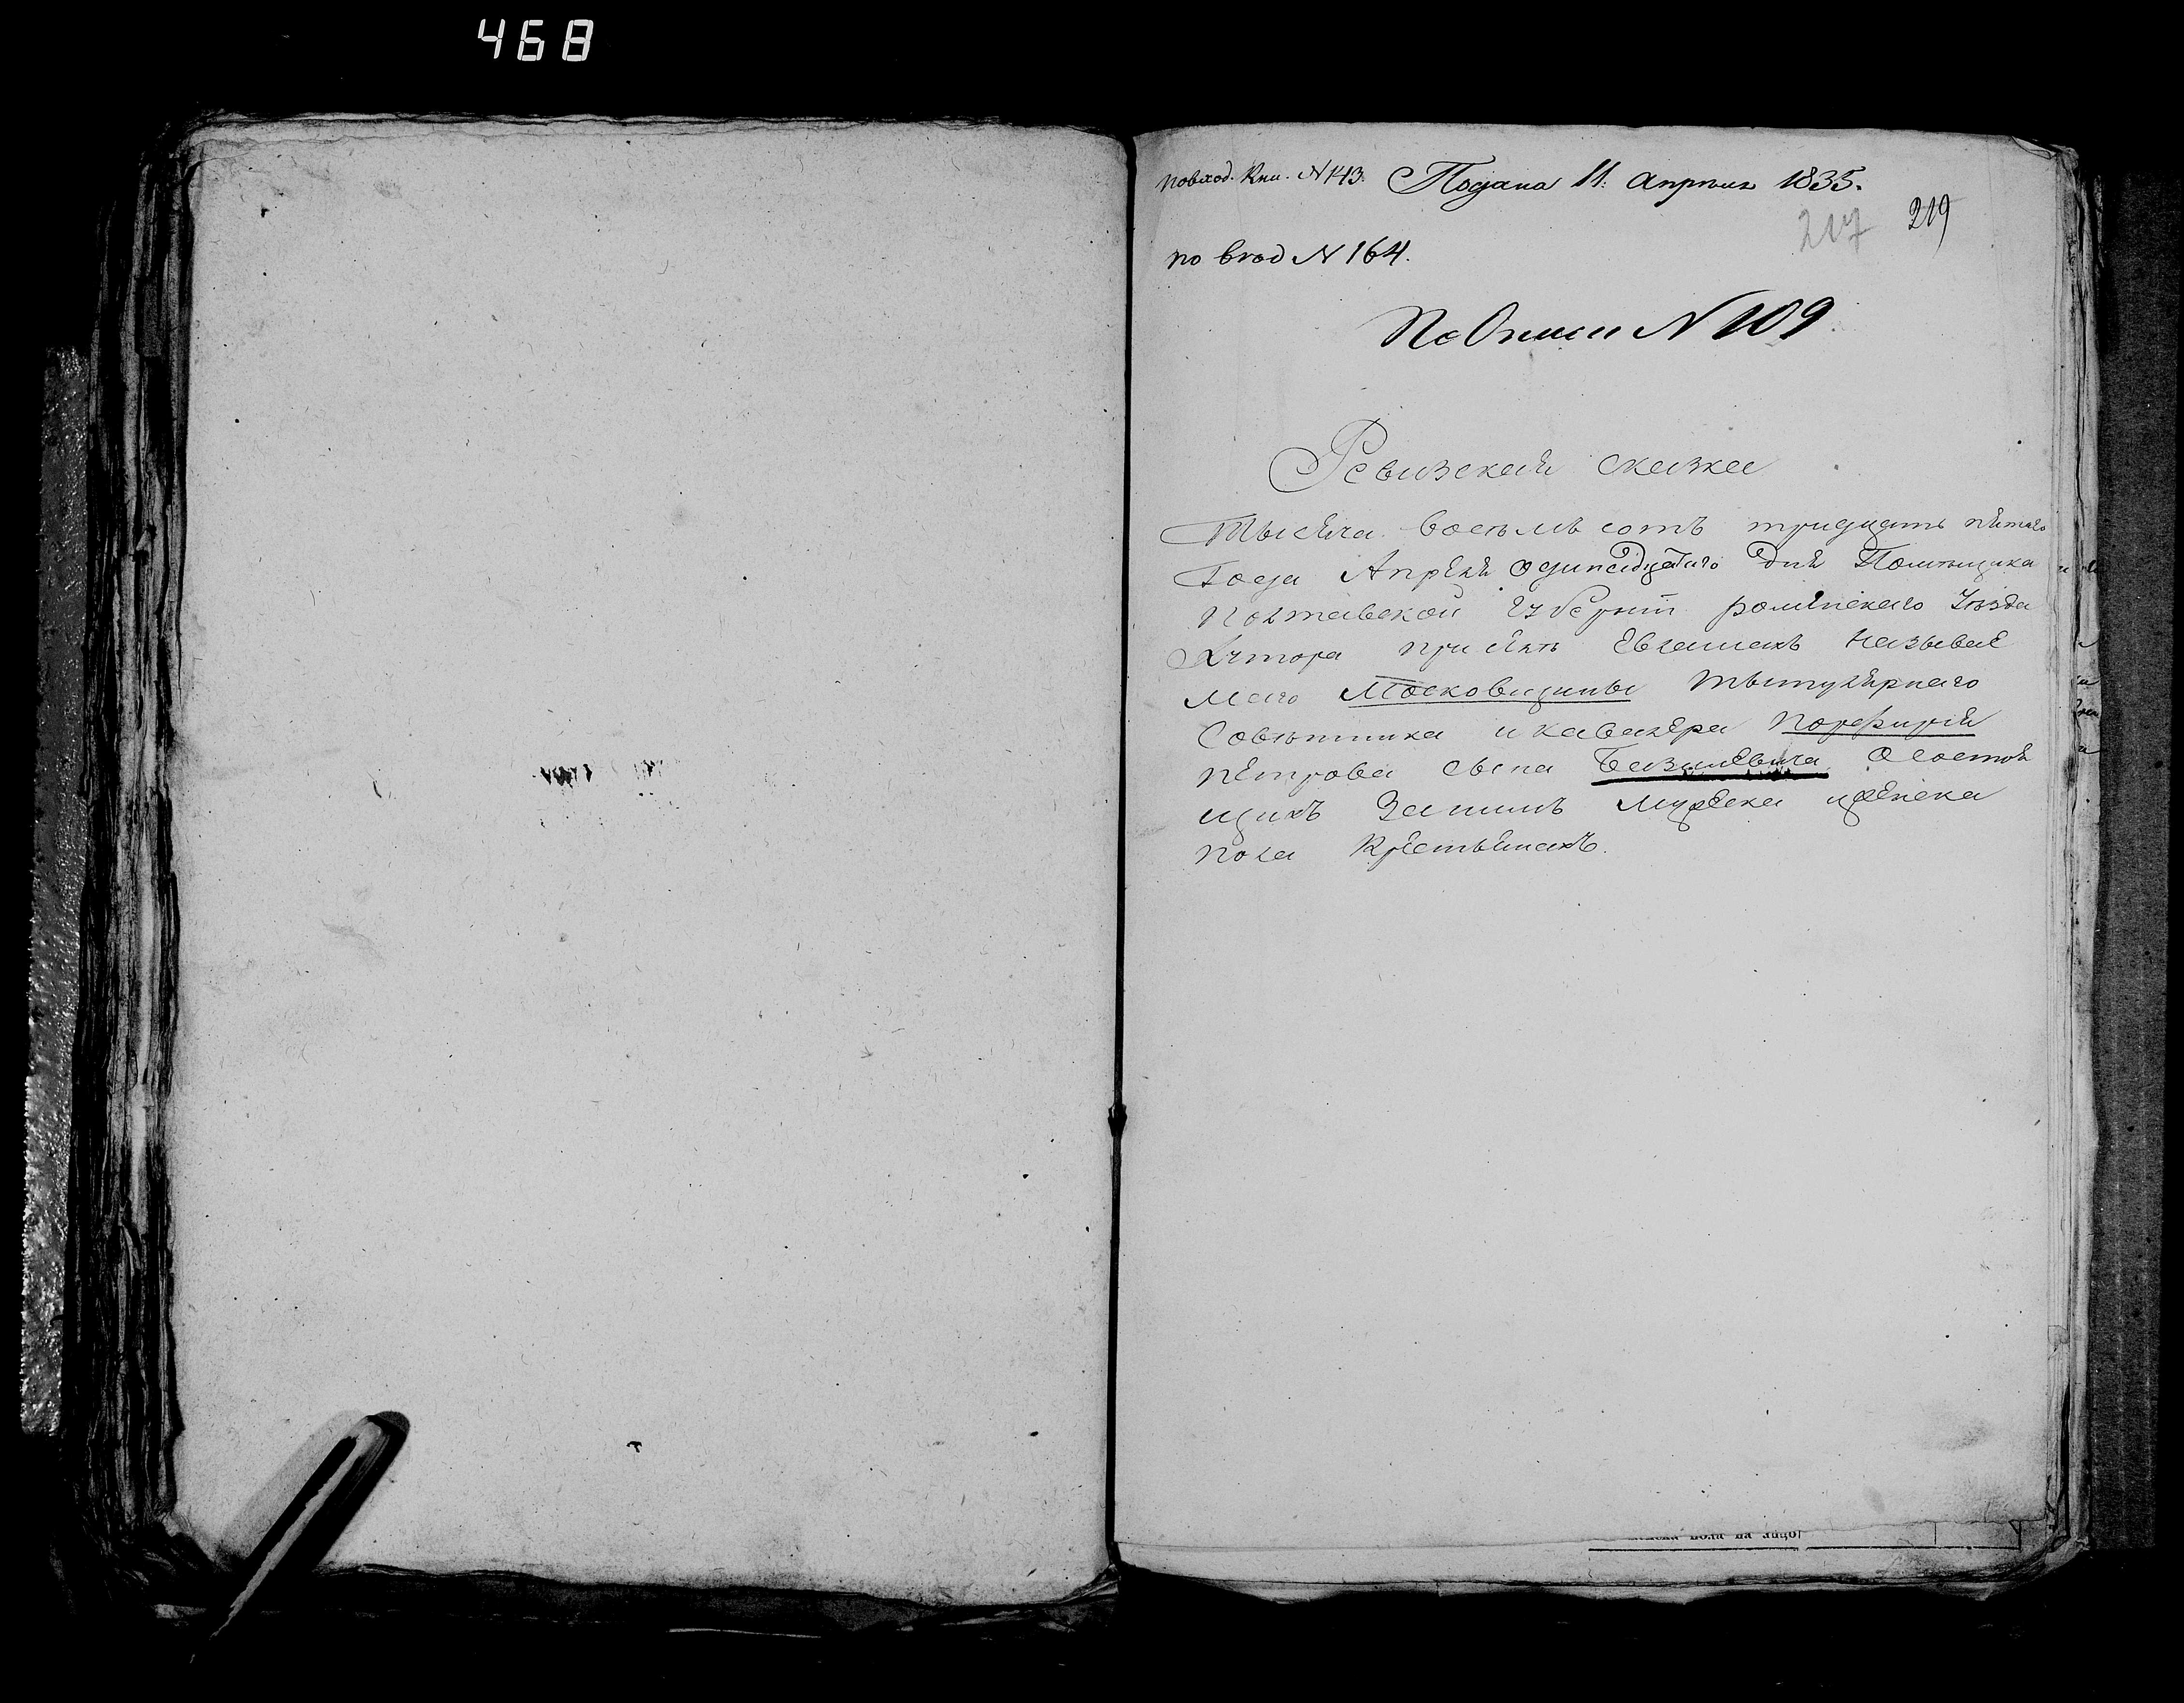 468
повход. Кни. N 143. Подана 11: апреля 1835.
217 219
по вход N 164.
По Описи N 109
Ревизская сказка
Тысяча восемь сотъ тридцать пятого
Года Апреля одинадцатого Дня Помещика
Полтавской Губернии роменскаго уезда
Хутора при названае
маго Московщины тытулярнаго
Советника и кавалера Порфирия
Петрова сына Базилевича О состоя
щихъ За нимъ мужеска и женска
пола Крестьянахъ.
пола на лицо